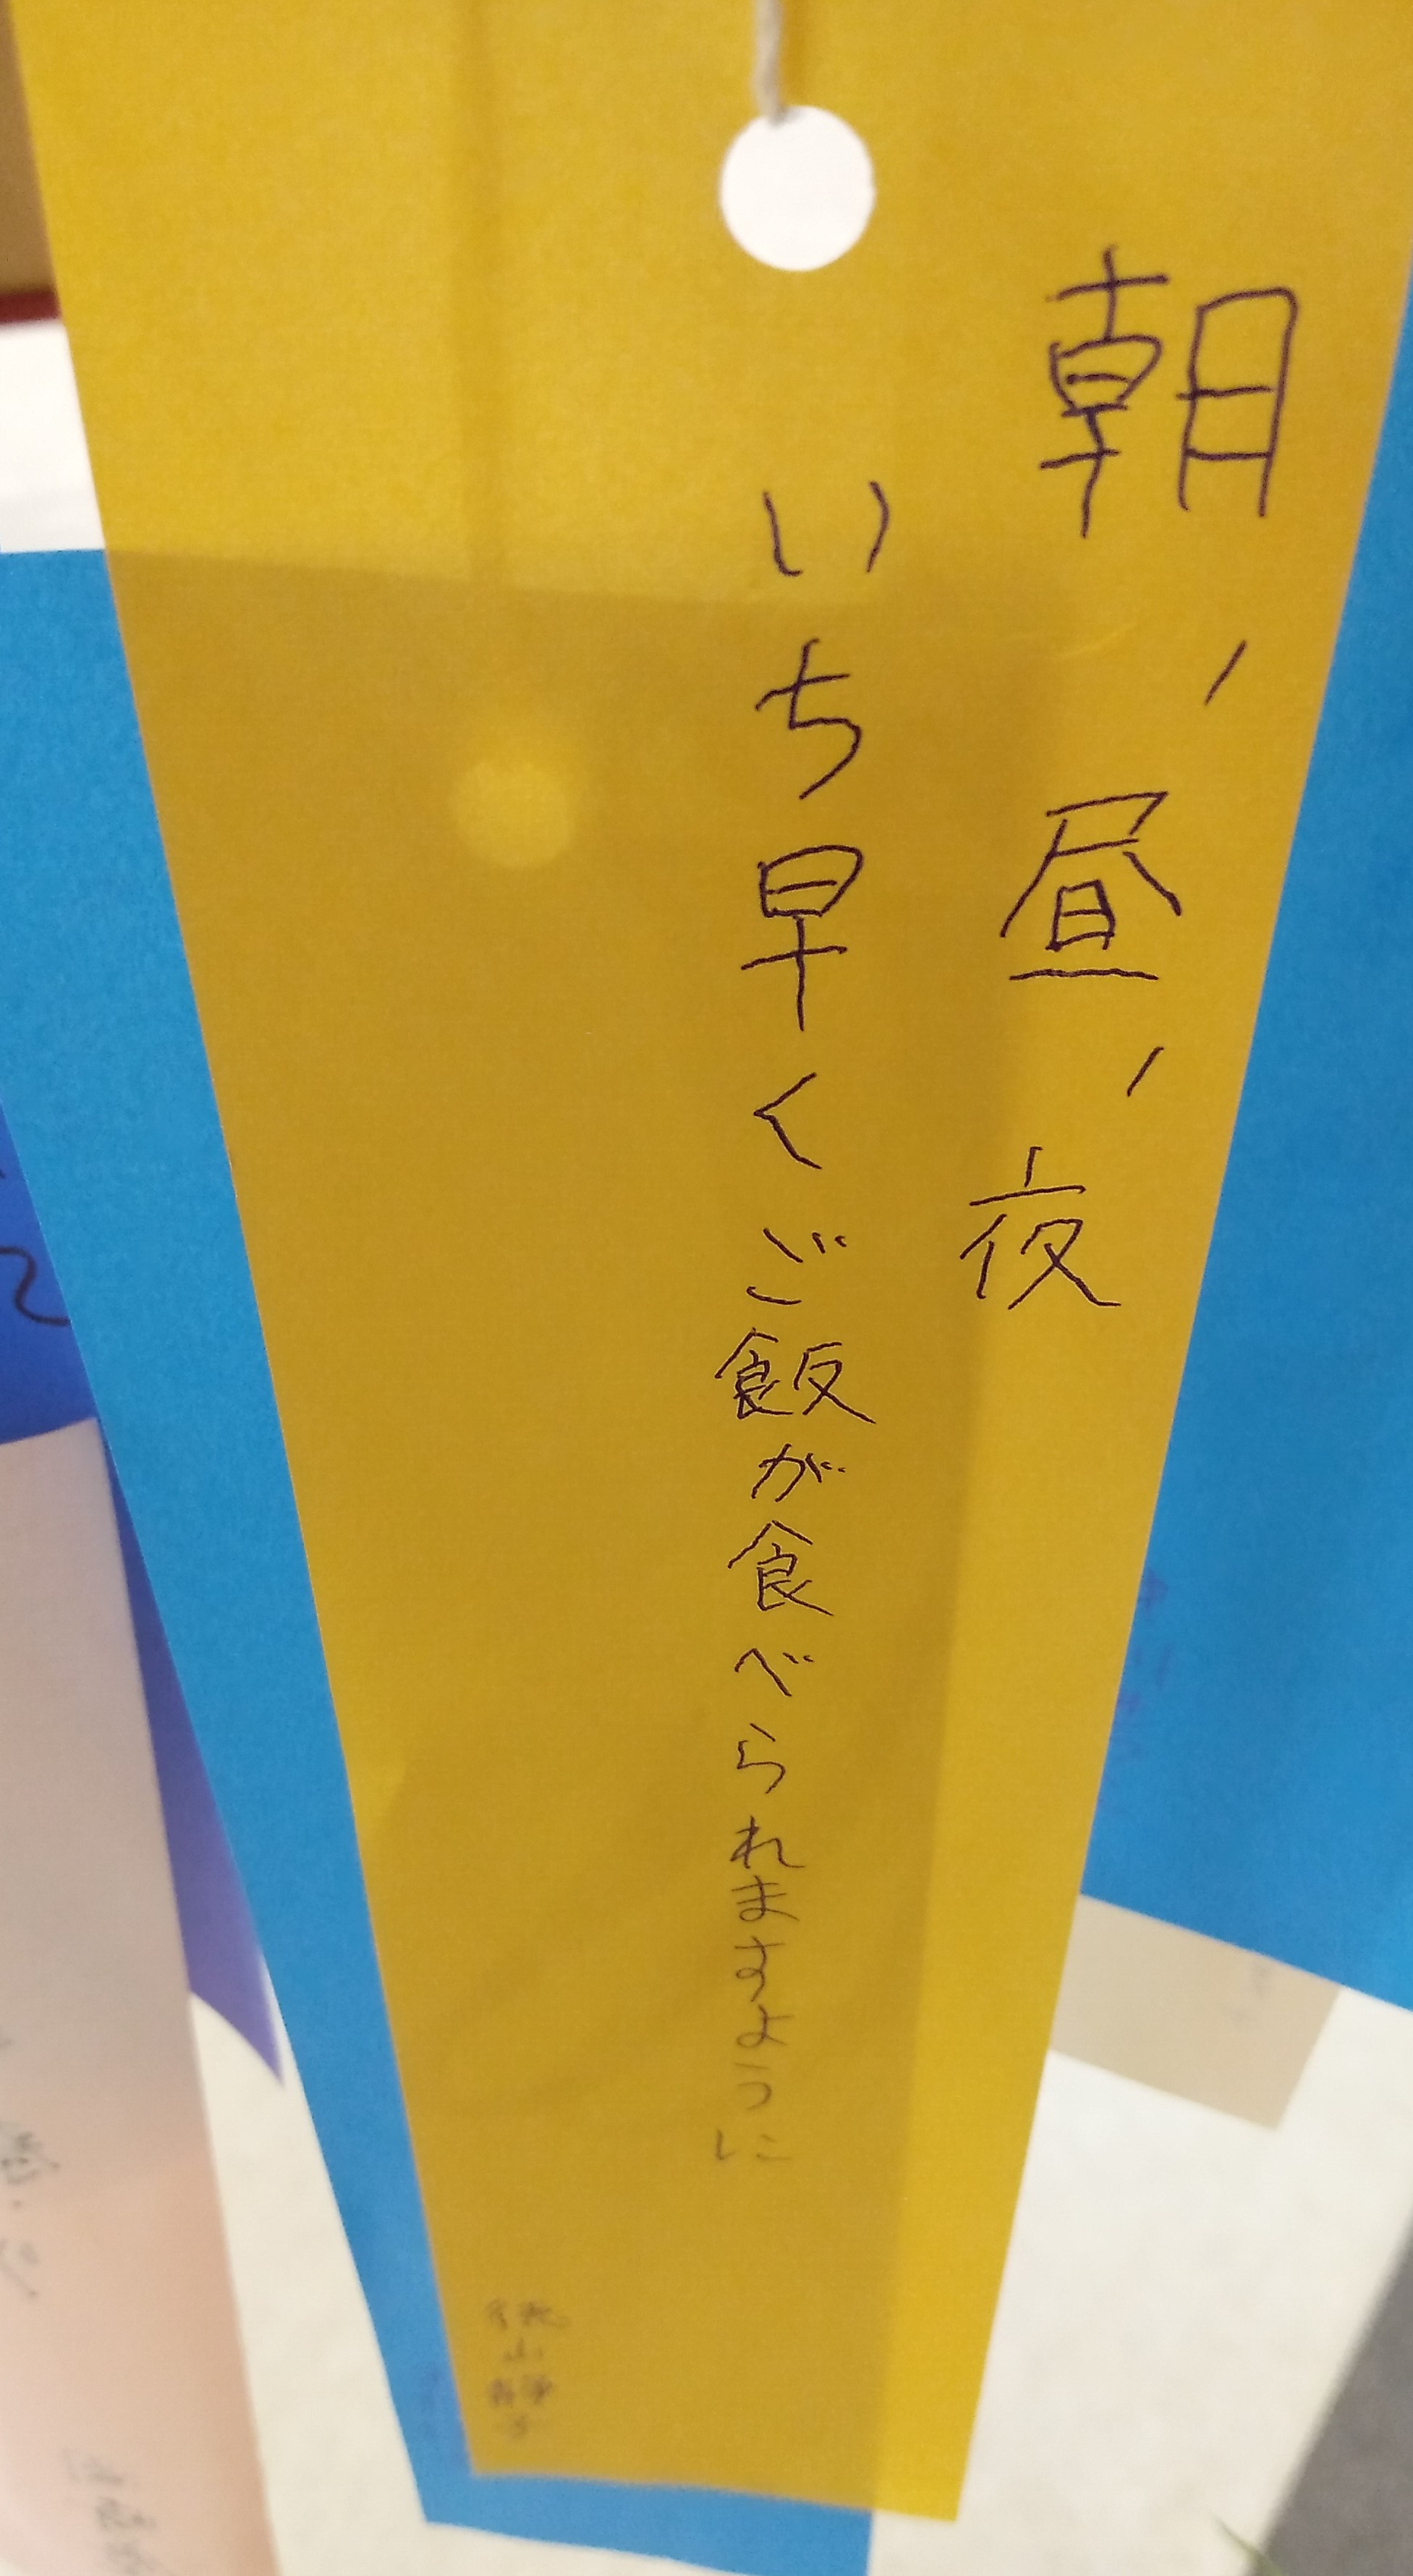 朝、昼、夜
いち早くご飯が食べられますように